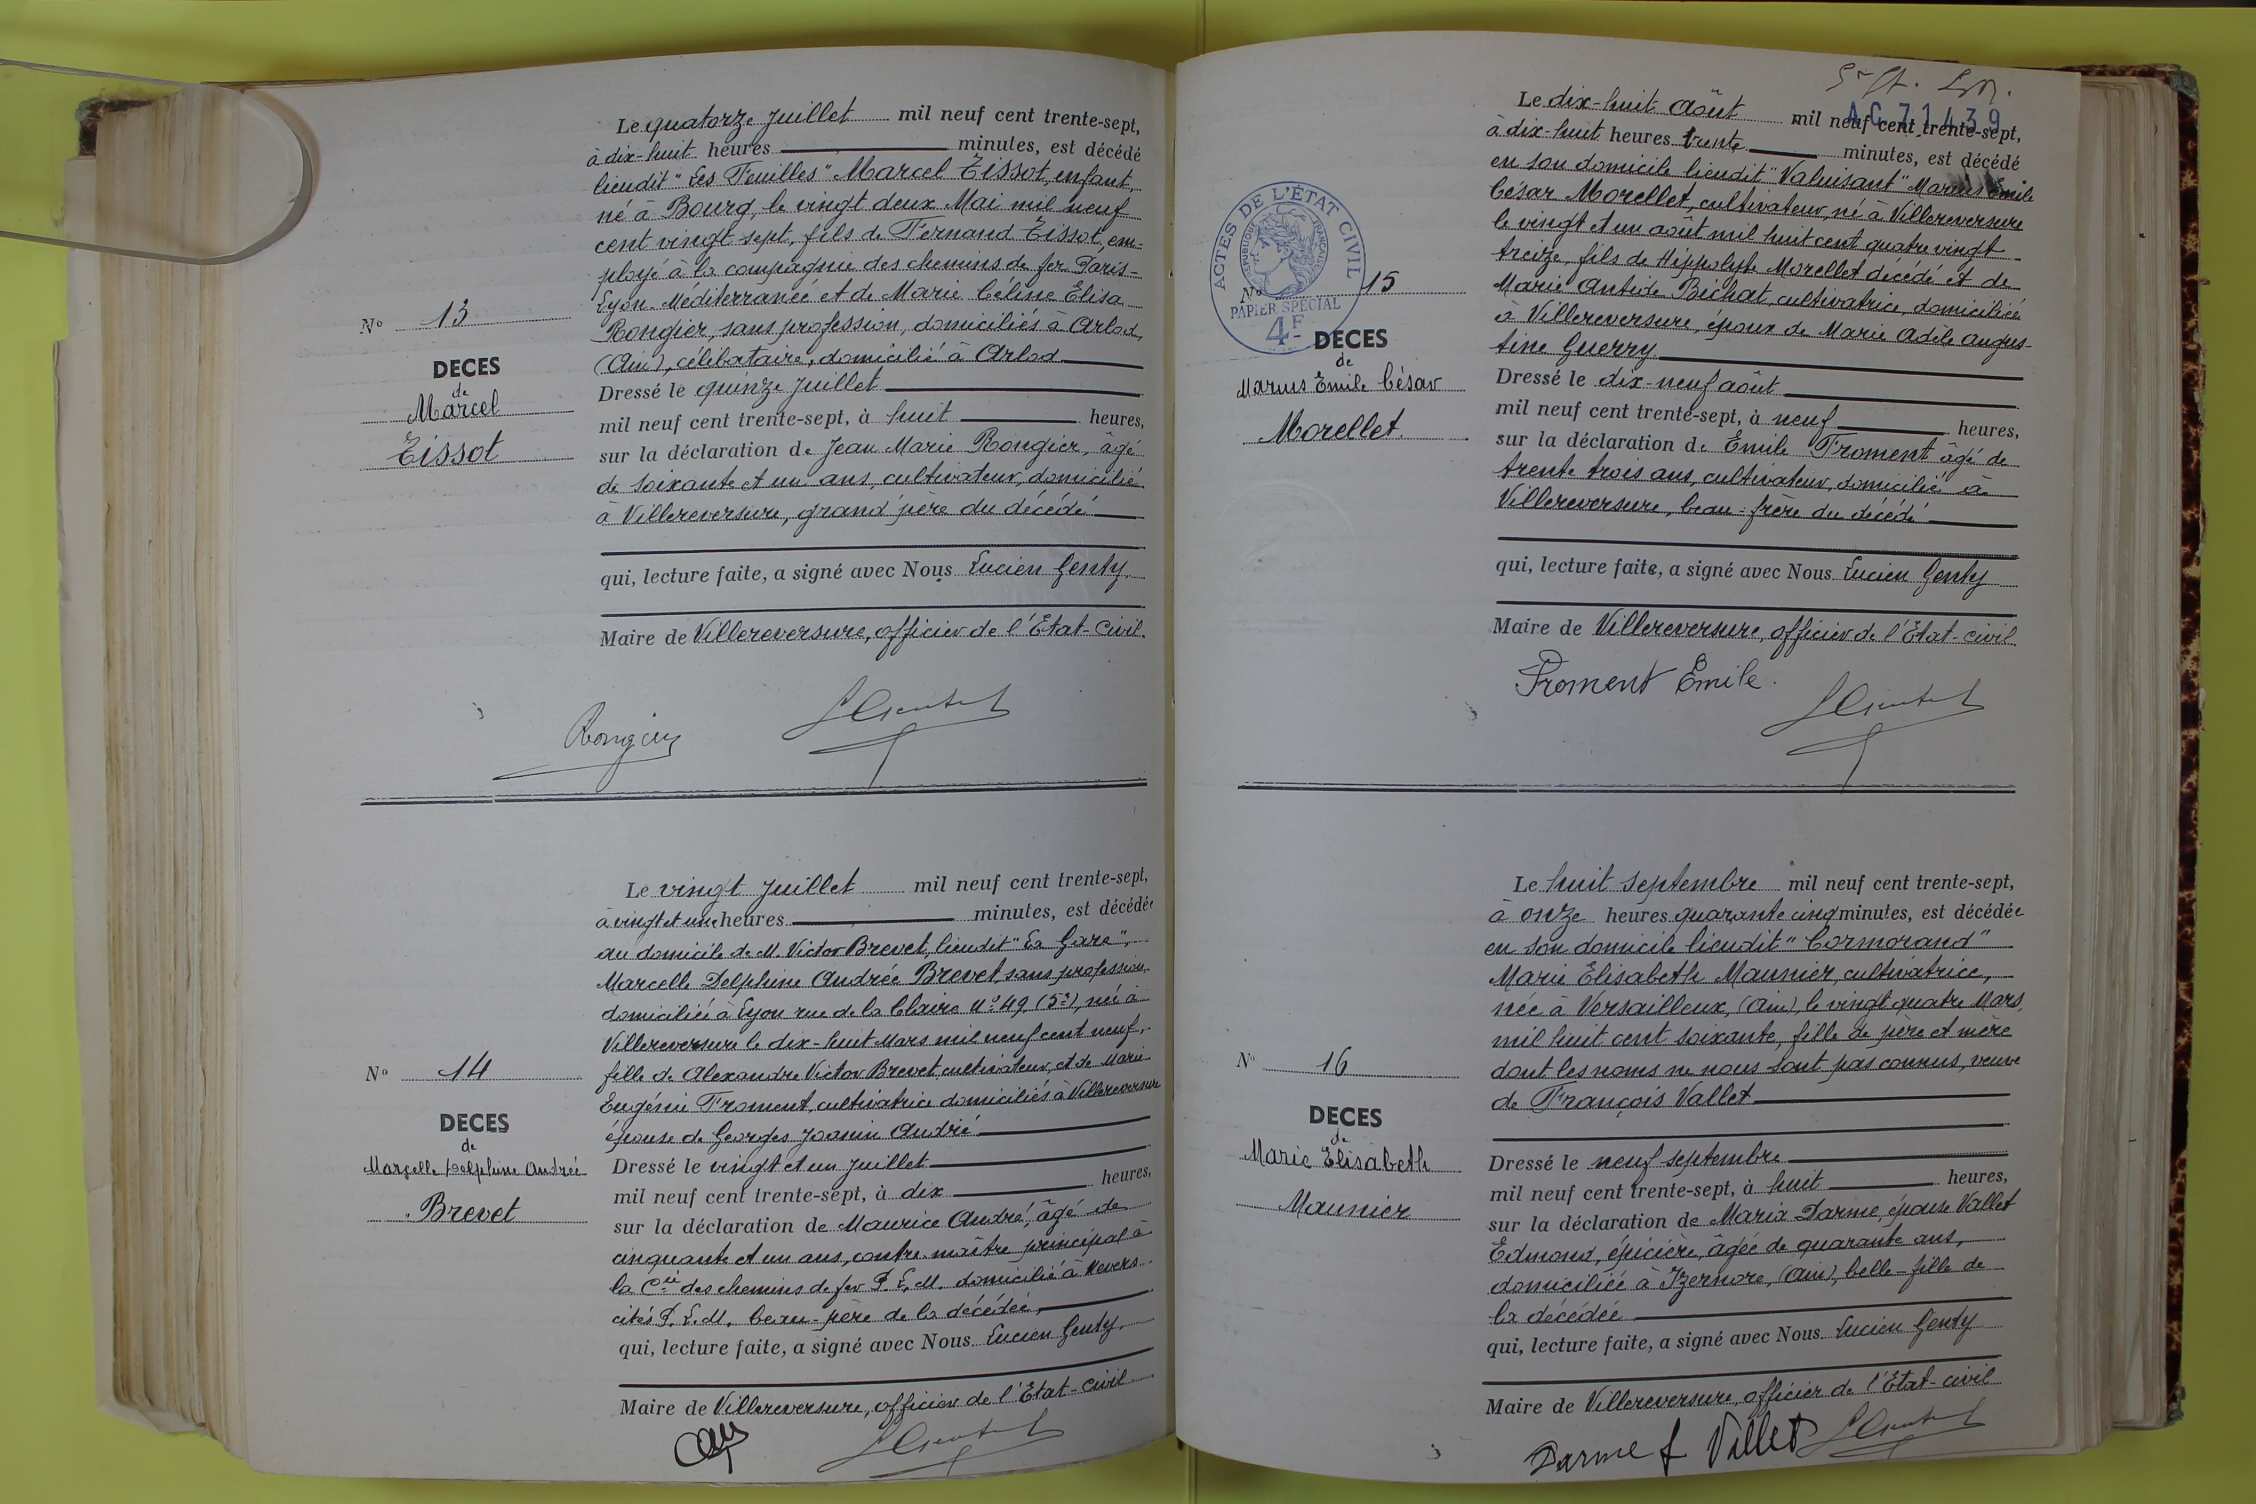 Le quatorze Juillet mil neuf cent trente-sept,
à dix-huit heures minutes, est décédé
lieudit "Les Feuilles" Marcel Tissot, enfant,
né à Bourg, le vingt deux Mai mil neuf
cent vingt sept, fils de Fernand Tissot, em=
ployé à la compagnie des chemins de fer Paris-
Lyon-Méditerranée et de Marie Céline Elisa
Rongier, sans profession, domiciliés à Arlod,
(Ain), célibataire, domicilié à Arlod
Nº 13
DECES
de
Marcel
Tissot
Dressé le quinze Juillet
mil neuf cent trente-sept, à huit heures,
sur la déclaration de Jean Marie Rongier, âgé
de soixante et un ans, cultivateur, domicilié
à Villereversure, grand'père du décédé
qui, lecture faite, a signé avec Nous Lucien Genty.
Maire de Villereversure, officier de l'Etat-Civil.
Rongier
Le vingt Juillet mil neuf cent trente-sept,
à vingt et une heures minutes, est décédée
au domicile de M. Victor Brevet, lieudit "La Gare",
Marcelle Delphine Andrée Brevet, sans profession
domiciliée à Lyon rue de la Claire Nº 49 (5e), née à
Villereversure le dix-huit Mars mil neuf cent neuf,
fille de Alexandre Victor Brevet, cultivateur, et de Marie
Eugénie Froment, cultivatrice domiciliés à Villereversure
épouse de Georges Joanin André
Nº 14
DECES
de
Marcelle Delphine Andrée
Brevet
Dressé le vingt et un Juillet
mil neuf cent trente-sept, à dix heures,
sur la déclaration de Maurice André, âgé de
cinquante et un ans, contre-maître principal à
la Cie des chemins de fer P.L.M. domicilié à Nevers
cités P.L.M. beau-père de la décédée,
qui, lecture faite, a signé avec Nous Lucien Genty.
Maire de Villereversure, officier de l'Etat-civil
AC 71439
Le dix-huit Août mil neuf cent trente-sept,
à dix-huit heures trente minutes, est décédé
en son domicile lieudit "Valuisant" Marius Emile
César Morellet, cultivateur, né à Villereversure
le vingt et un août mil huit cent quatre vingt
treize, fils de Hippolyte Morellet décédé et de
Marie Antede Bichat, cultivatrice, domiciliée
à Villereversure, époux de Marie Adèle Augus-
tine Guerry
ACTES DE L'ÉTAT CIVIL
RÉPUBLIQUE FRANÇAISE
PAPIER SPÉCIAL
4F
Nº 15
DECES
de
Marius Emile César
Morellet.
Dressé le dix-neuf août
mil neuf cent trente-sept, à neuf heures,
sur la déclaration de Emile Froment âgé de
trente trois ans, cultivateur, domicilié à
Villereversure, beau-frère du décédé
qui, lecture faite, a signé avec Nous Lucien Genty
Maire de Villereversure, officier de l'Etat-civil
Froment Emile.
Le huit septembre mil neuf cent trente-sept,
à onze heures quarante cinq minutes, est décédée
en son domicile lieudit "Cormorand"
Marie Elisabeth Maunier, cultivatrice,
née à Versailleux, (Ain), le vingt quatre Mars,
mil huit cent soixante, fille de père et mère
dont les noms ne nous sont pas connus, veuve
de François Vallet
Nº 16
DECES
de
Marie Elisabeth
Maunier
Dressé le neuf septembre
mil neuf cent trente-sept, à huit heures,
sur la déclaration de Maria Darme, épouse Vallet
Edmond, épicière, âgée de quarante ans,
domiciliée à Izernore, (Ain), belle-fille de
la décédée
qui, lecture faite, a signé avec Nous Lucien Genty
Maire de Villereversure, officier de l'Etat-civil
Darme f Vallet